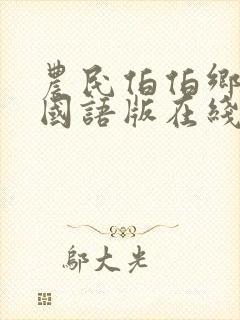 農民伯伯鄉
國語版在綫
鄔大光